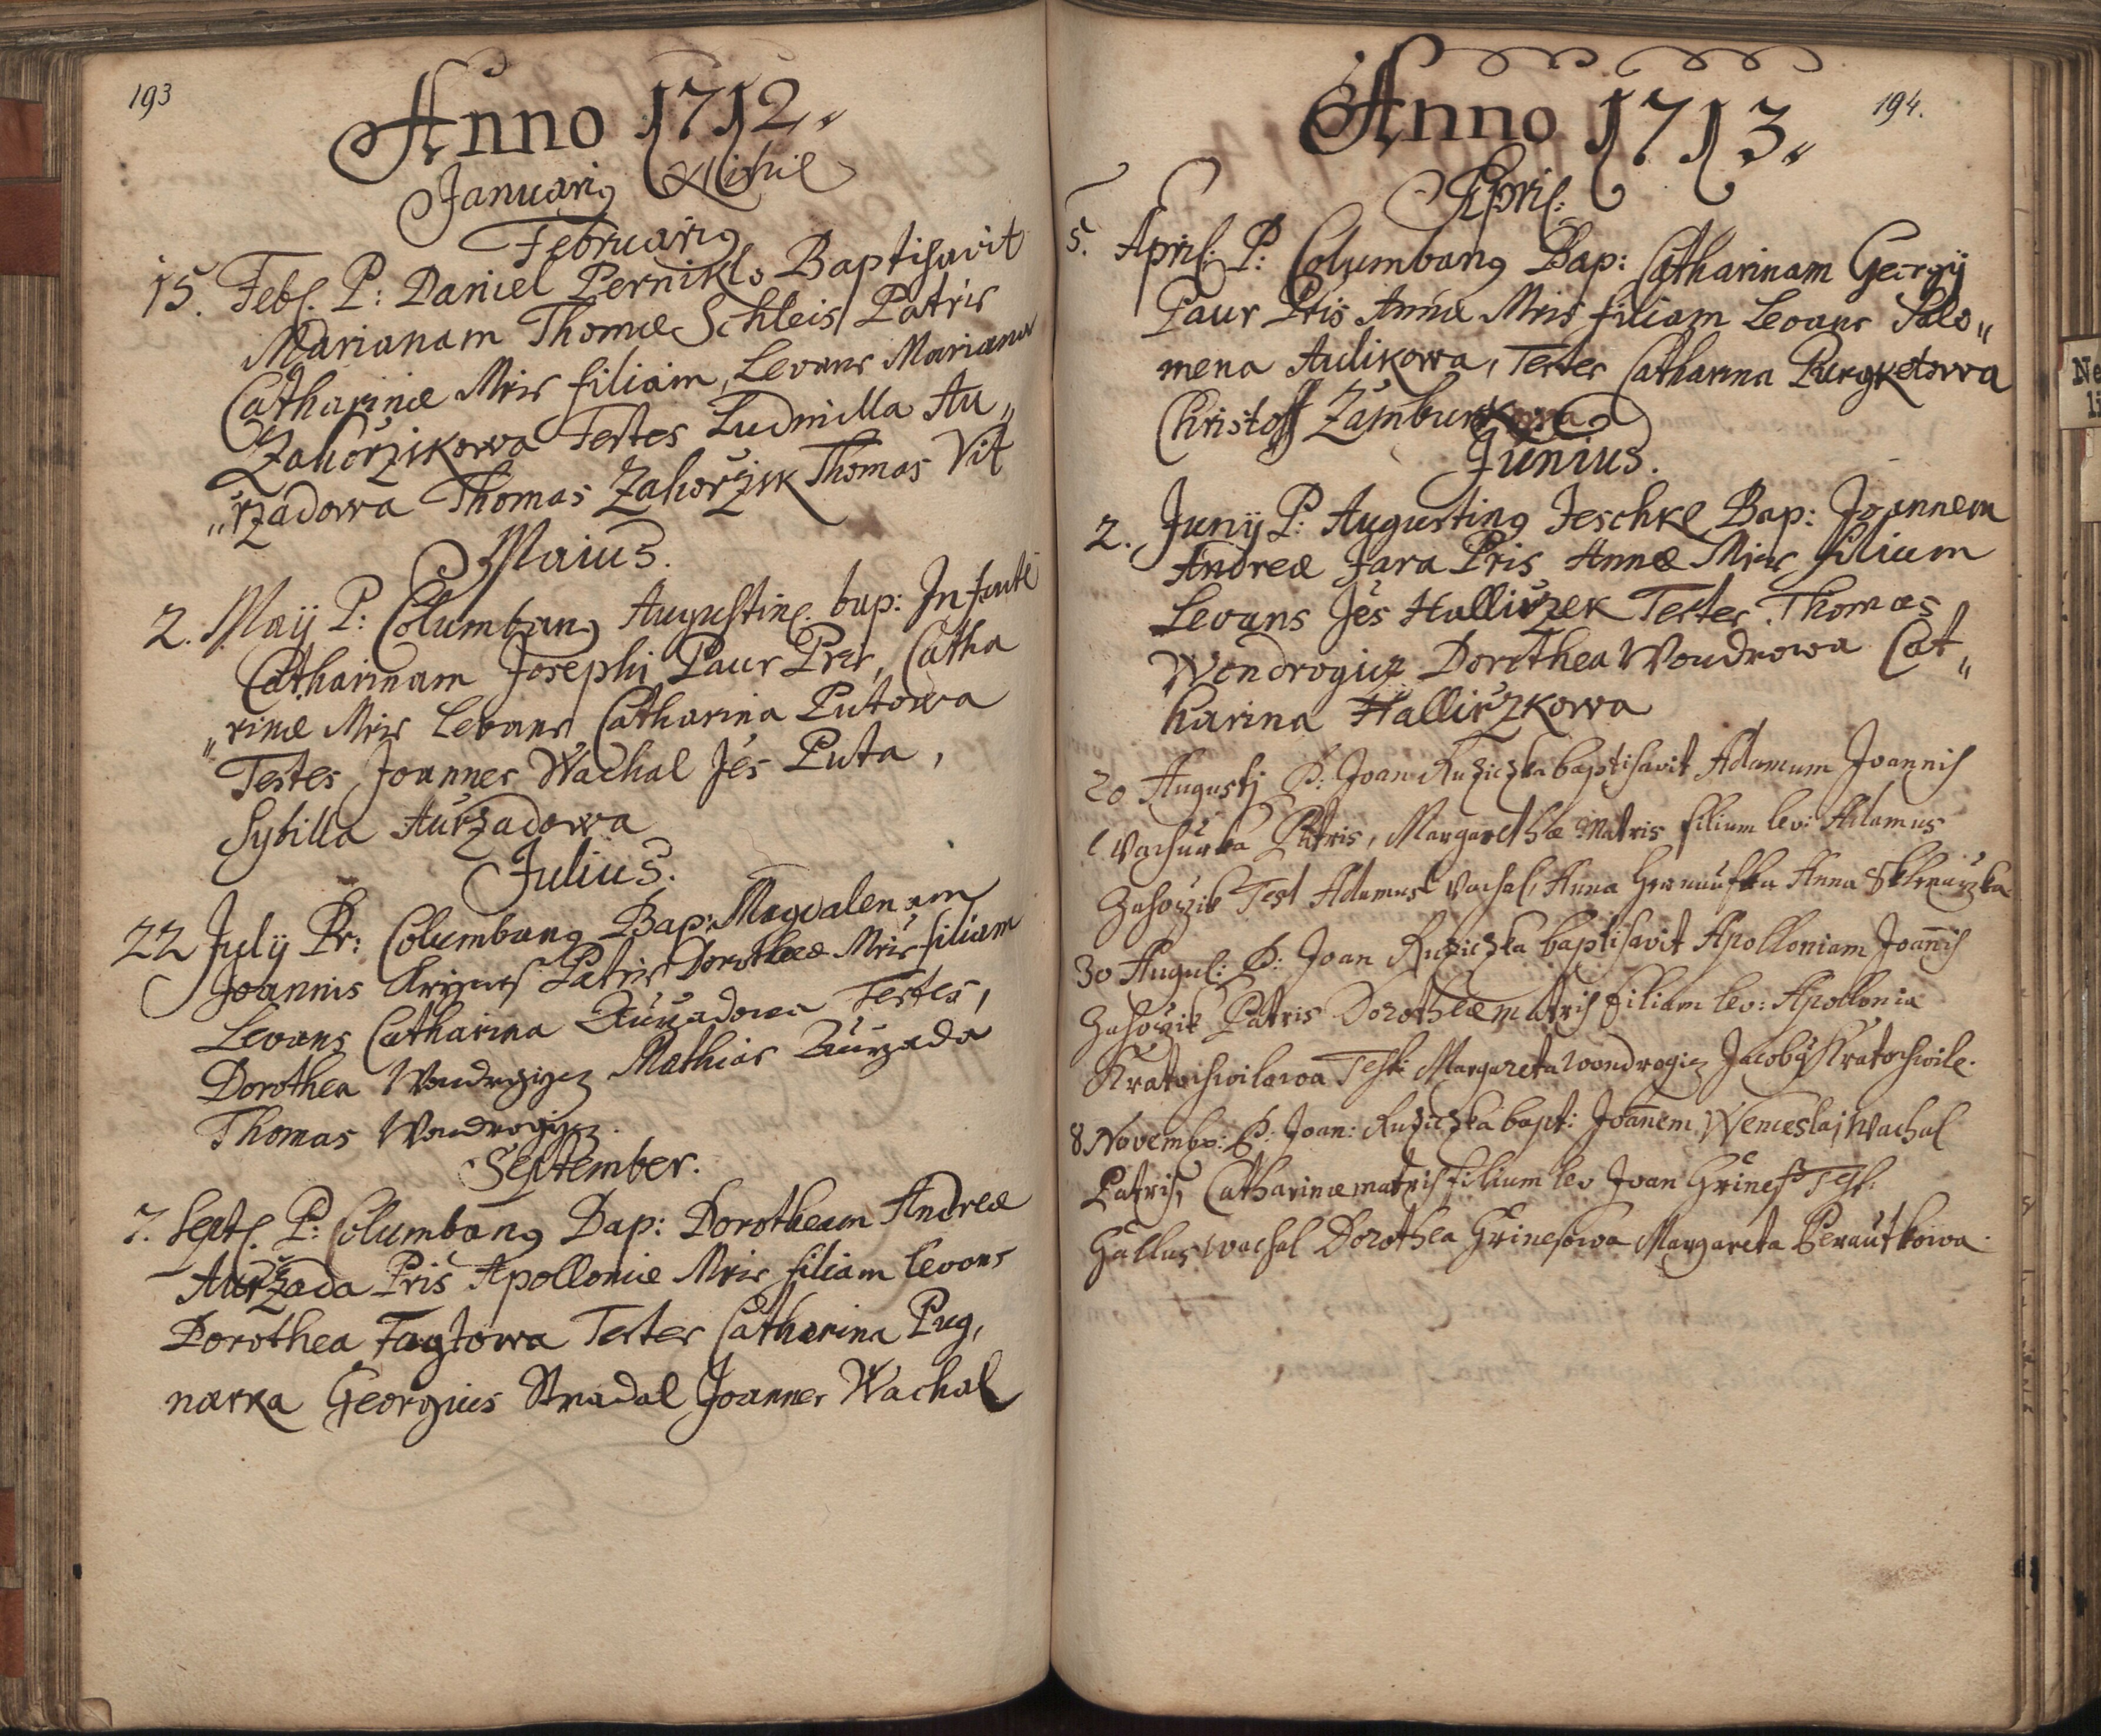 193
Anno 1712.
Januarig Nihil
Februarig
15. Feb. P: Daniel Pernikl. Baptisavit
Marianam Thomæ Schleis Patris
Catharinæ Mris filiam, Levans Mariana
Zahorzikowa Testes Ludmilla Au„
„rzadowa Thomas Zahorzik Thomas Vit
Maius.
2. Maij P: Columbang Augustin. bap: Infantē
Catharinam Josephi Paur Pris, Catha
„rinæ Mris Levans Catharina Putowa
Testes Joannes Wachal Jēs Puta,
Sybilla Aurzadowa
Julius.
22 July Pr: Columbang Bap: Magdalenam
Joannis Patris Dorotheæ Mris filiam
Levans Catharina Testes,
Dorothea Wondrogicz Mathias
Thomas Wondrogicz.
September.
7. Sept. P: Columbang Bap: Dorotheam Andreæ
Aurzada Pris Apolloniæ Mris filiam levans
Dorothea Tagtowa Testes Catharina Pug,
narka Georgius Stradal Joannes Wachal
194.
Anno 1713.
April:
5. April: P: Columbang Bap: Catharinam Georgij
Paur Pris Annæ Mris filiam Levans Salo„
mena Aulikowa, Testes Catharina Purgketowa
Christoff
Junius.
2. Junij P: Augusting Jeschke Bap: Joannem
Andreæ Jara Pris Annæ Mris filium
Levans Jēs Hallirzek Testes Thomas
Wondrogicz Dorothea Woudrowa Cat„
harina Hallirzkowa
20 Augustj P: Joan Ruziczka baptisavit Adamum Joannis
Wachurka Patris, Margarethæ Matris filium lev: Adamus
Zahorzik Test Adamus Wachal, Anna Anna Sklenarzka
30 Augus: P: Joan Ruziczka baptisavit Apolloniam Joannis
Zahorzik Patris Dorotheæ matris filiam lev: Apollonia
Kratochwilowa Test: Margareta Wondrogicz Jacobg Kratochwile.
8 Novembr: P: Joan: Ruziczka bapt: Joanem Wenceslaj Wachal
Patris, Catharinæ matris filium lev Joan Grines Test:
Gallus Wachal Dorothea Grinesowa Margareta Berautkowa.